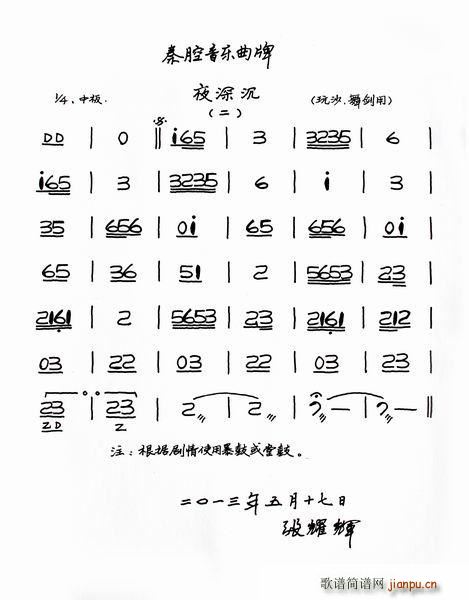 秦腔音乐曲牌
夜深沉
1/4、中板. (二) (玩沙.舞剑用)
DD | 0 ‖ i65 | 3 | 3235 | 6 |
i65 | 3 | 3235 | 6 | i | 3 |
35 | 656 | 0i | 65 | 656 | 0i |
65 | 36 | 51 | 2 | 5653 | 23 |
2161 | 2 | 5653 | 23 | 2161 | 212 |
03 | 22 | 03 | 22 | 03 | 23 |
23 | 23 | 2 | 2 | 2 — | 2 — ‖
ZD Z
注:根据剧情使用暴鼓或堂鼓。
二〇一三年五月十七日
张耀辉
歌谱简谱网 jianpu.cn